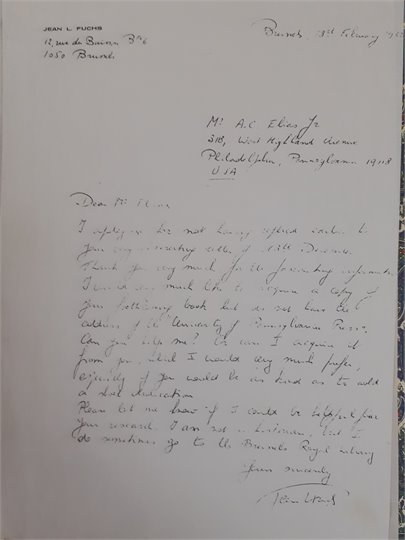 JEAN L. FUCHS
12, rue du Buisson Bte 6
1050 Brussels
Brussels, February
Mr A.C. Elias Jr
318, West Highland Avenue
Philadelphia, Pennsylvania 19118
USA
Dear Mr Elias
I apologize for not having replied earlier to
your very interesting letter of 13th December.
Thank you very much for the interesting information
I would very much like to acquire a copy of
your forthcoming book but do not have the
address of the University of Pennsylvania Press.
Can you help me? Or can I acquire it
from you, which I would very much prefer,
especially if you would be as kind as to add
a short dedication
Please let me know if I could be helpful for
your research. I am not a historian, but I
do sometimes go to the Brussels Royal Library
Yours sincerely